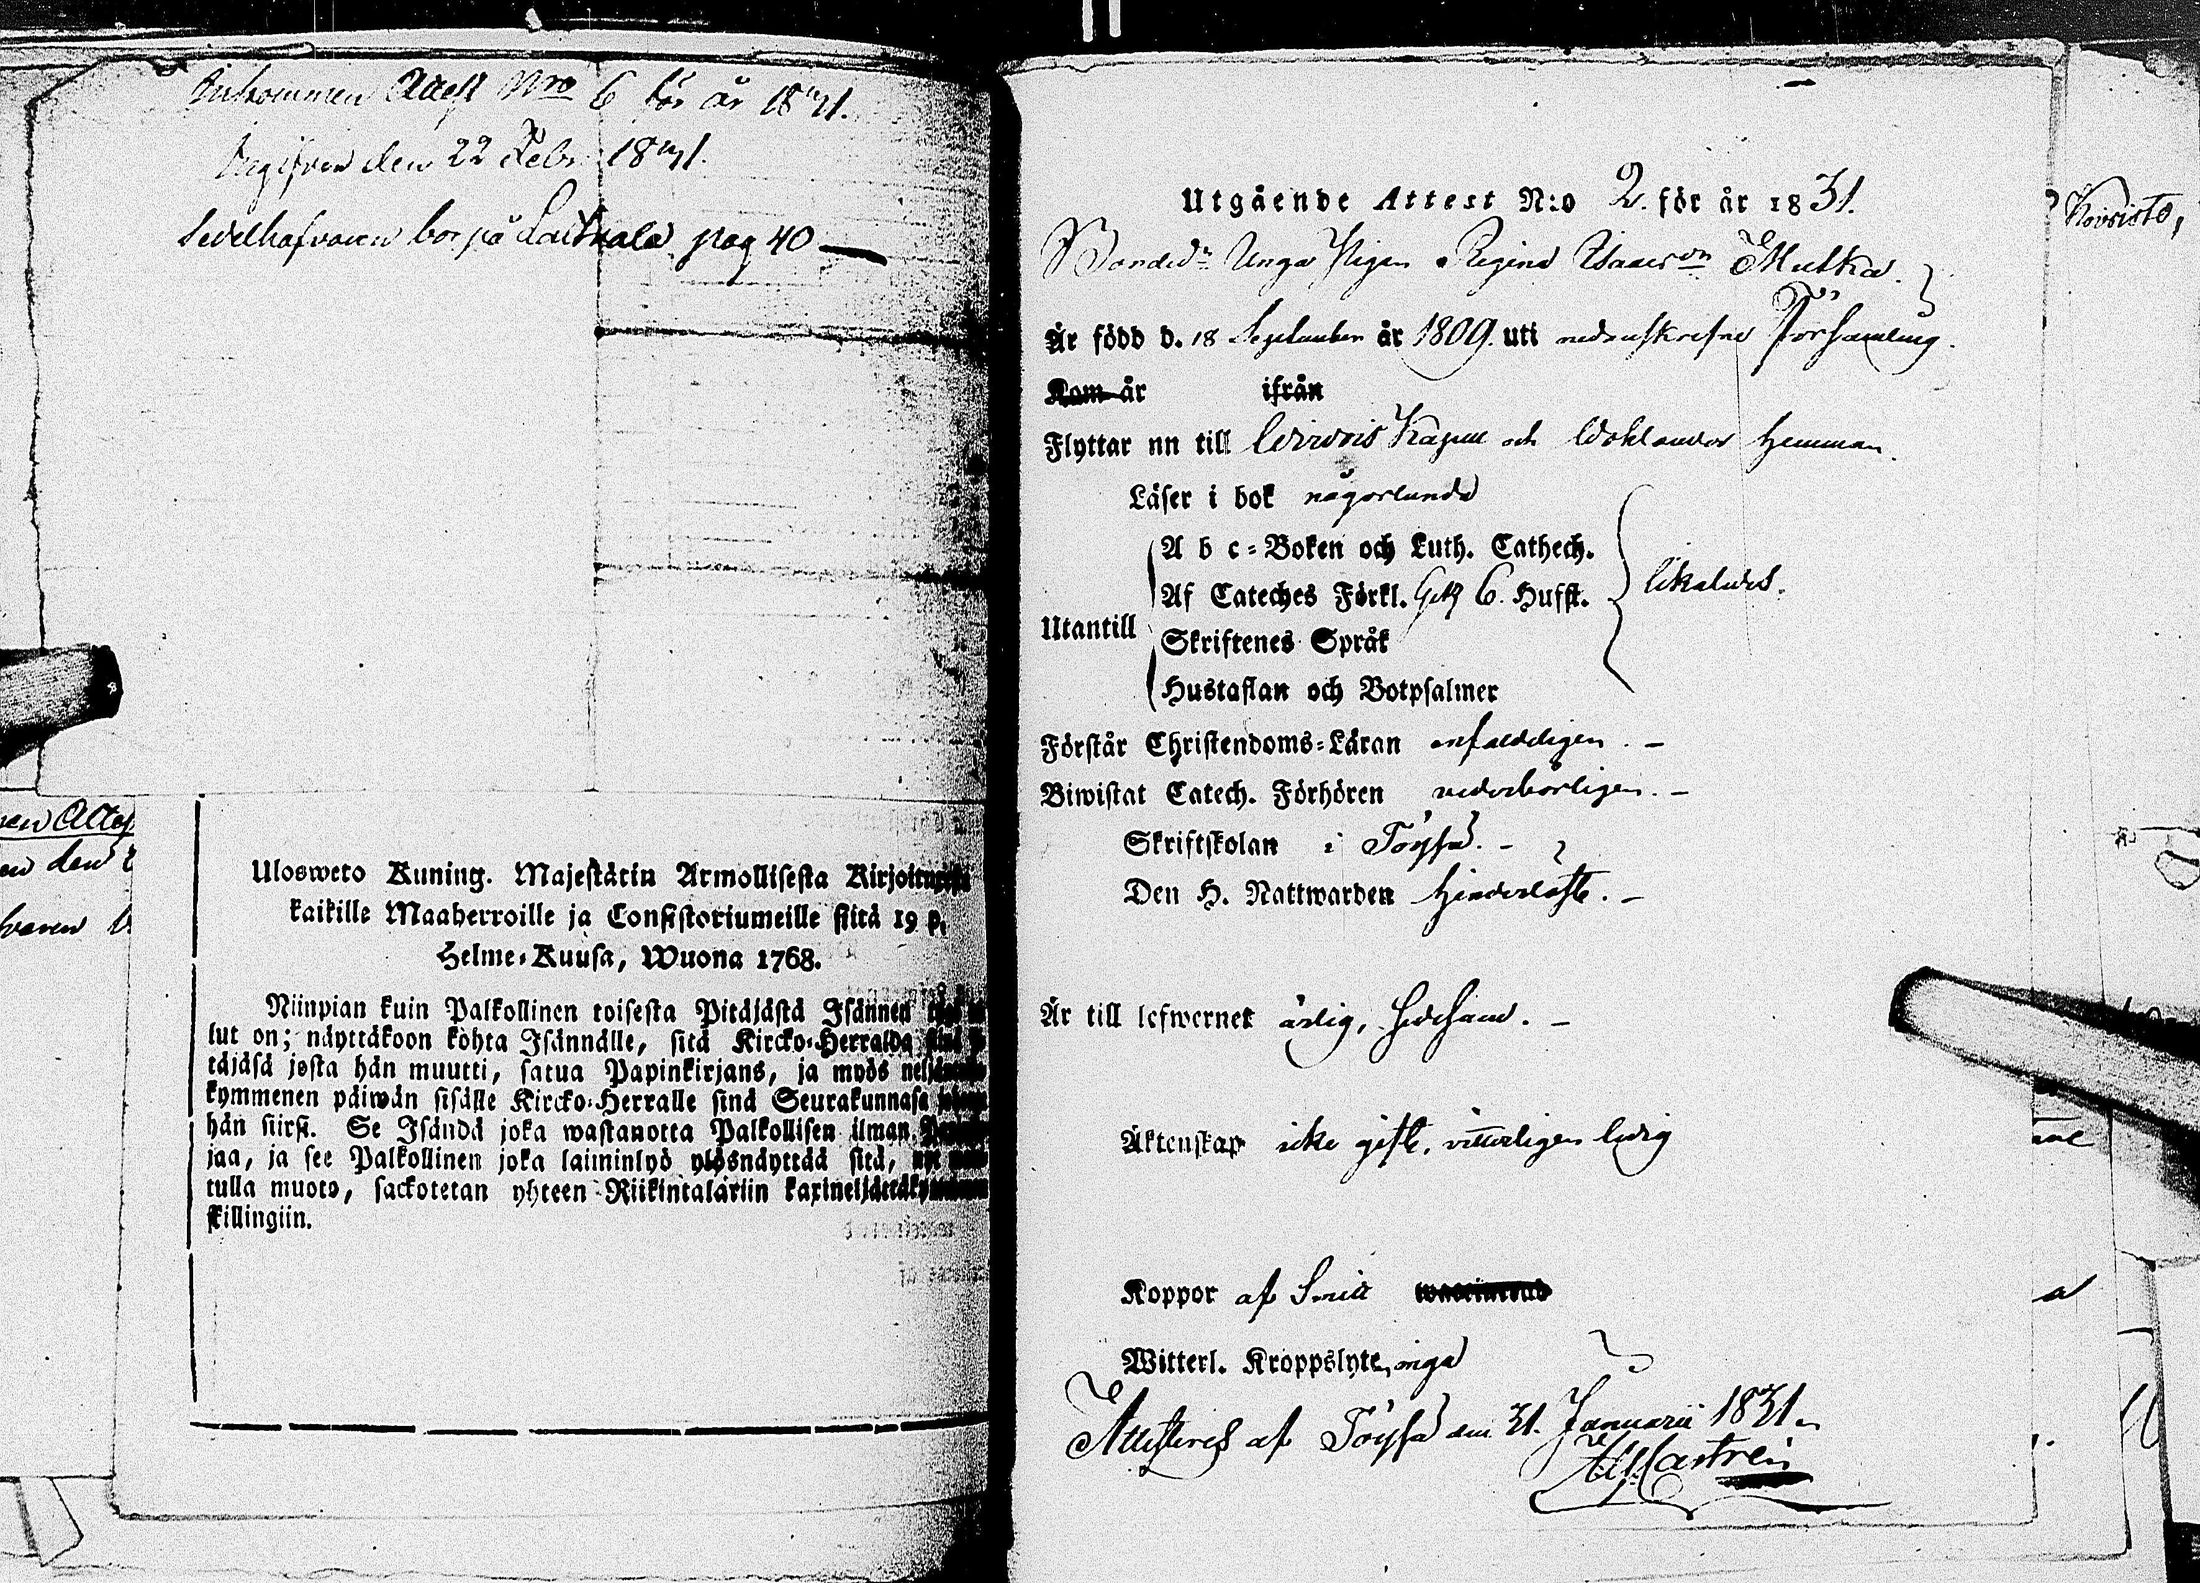 Inkommen Attest Nro 6 för år 1831.
den 22 Febr 1831.
Sedelhafvaren bor på pag 40
en den
varen
Ulosweto Kuning. Majestätin Armollisesta Kirjoituxesta
kaikille Maaherroille ja Consistoriumeille siitä 19 p.
Helme-Kuusa, Wuona 1768.
Niinpian kuin Palkollinen toisesta Pitäjästä Isännen
lut on; näyttäkoon kohta Isännälle, sitä Kircko-Herralda
täjäsä josta hän muutti, satua Papinkirjans, ja myös
kymmenen päiwän sisälle Kircko-Herralle sinä Seurakunnasa
hän siirsi. Se Isändä joka wastanotta Palkollisen ilman
jaa, ja see Palkollinen joka laiminlyö ylösnäyttää sitä,
tulla muoto, sackotetan yhteen Riikintalariin
skillingiin.
Utgående Attest N:o 2. för år 1831.
Unga Pigan Regina Isaacsdr Mutka.
Är född d. 18 September år 1809. uti nedanskrefne Församling.
Kom år ifrån
Flyttar nu till Wirdois Kapell och hemman.
Läser i bok någorlunda
A b c-Boken och Luth. Cathech.
Af Cateches Förkl. 6. Hufst.
likaledes.
Utantill
Skriftenes Språk
Hustaflan och Botpsalmer
Förstår Christendoms-Läran enfaldeligen. -
Biwistat Catech. Förhören vederbörligen. -
Skriftskolan i Töysä. -
Den H. Nattwarden hinderlöst. -
Är till lefwernet ärlig, sedesam. -
Äktenskap icke gift, vitterligen ledig
Koppor af
Witterl. Kroppslyte, inga
Attesteras af Töysä den 31. Januarii 1831.
Castrén
Koivisto,